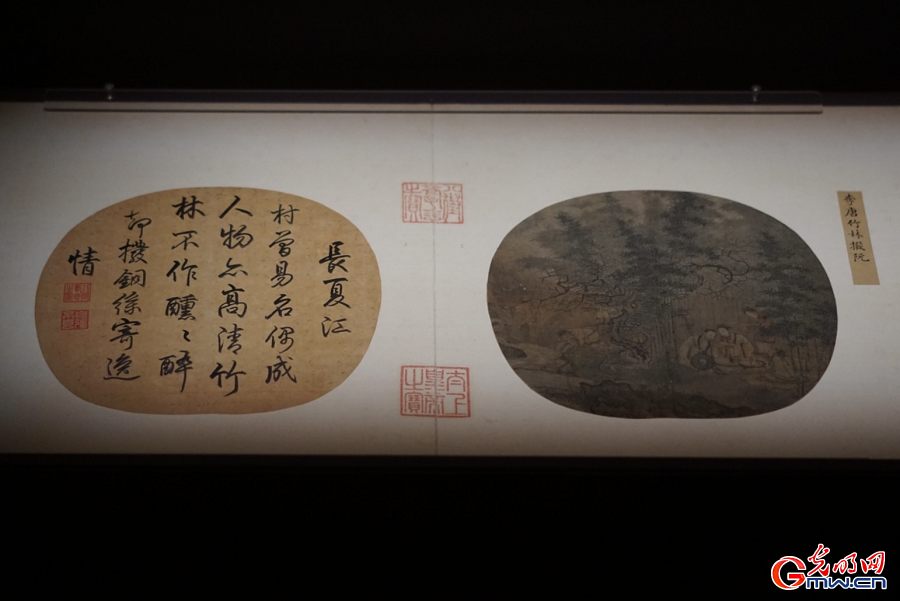 李唐竹林撥阮
八徵耄念之寶
太上皇帝之寶
長夏江
村曾易名偶成
人物亦高清竹
林不作醺〻醉
却撥銅絲寄逸
情
光明网
GMW.CN